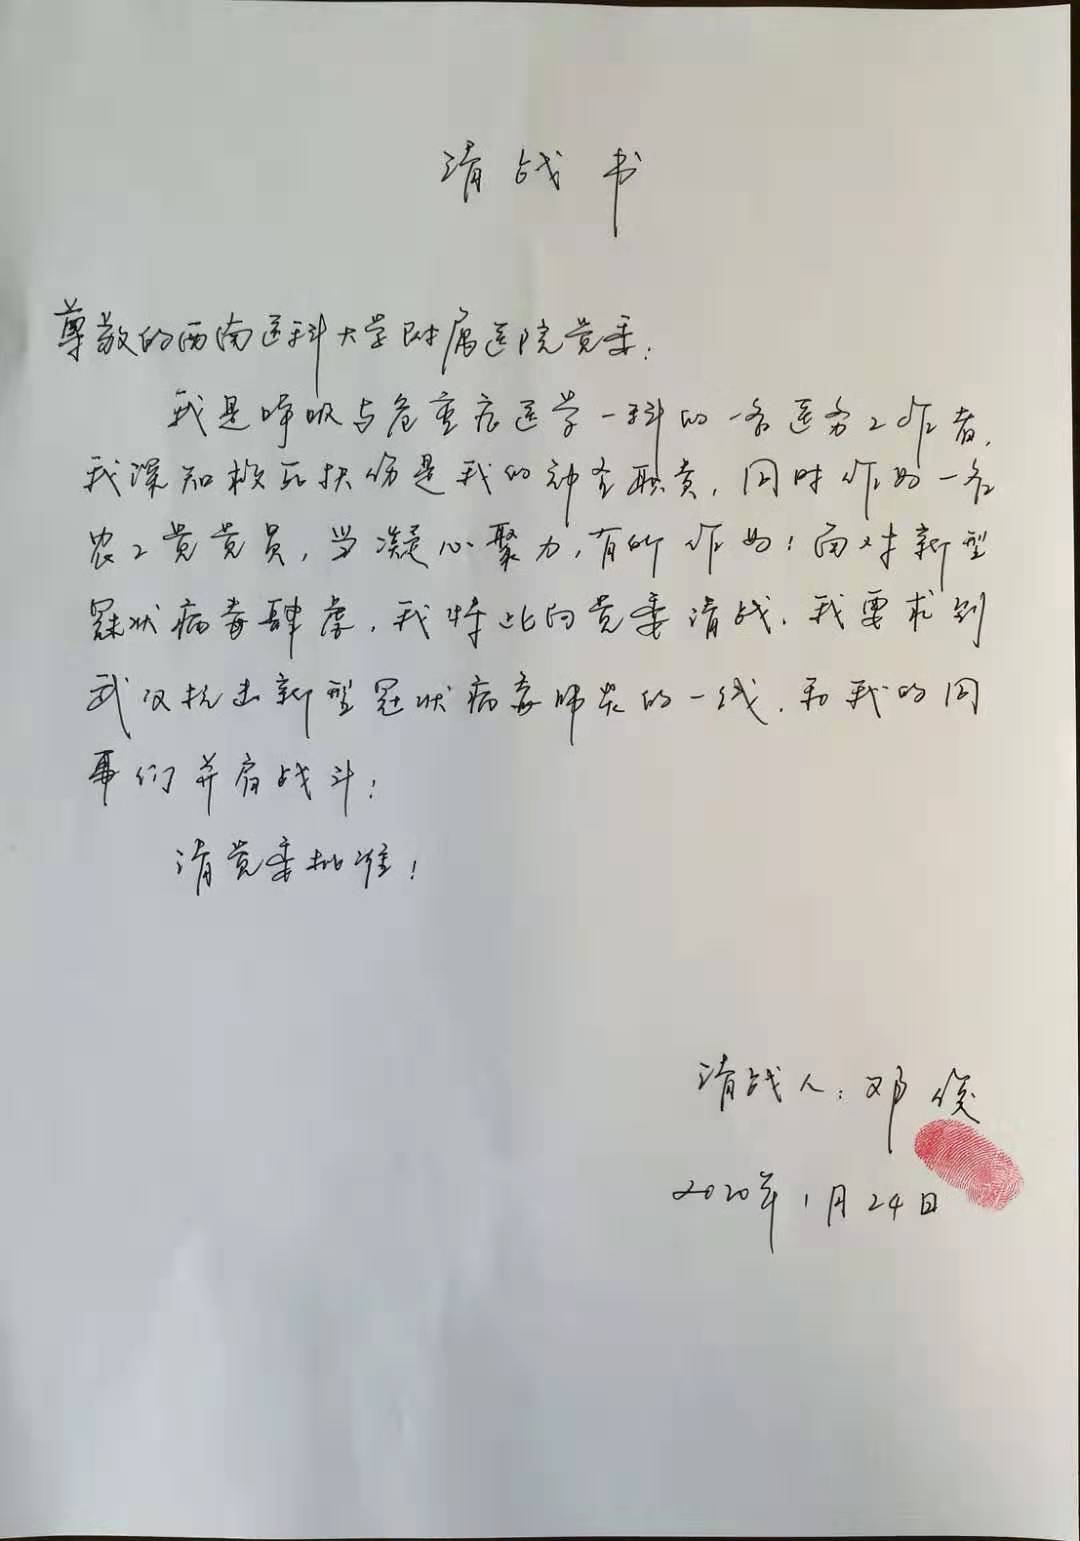 请战书
尊敬的西南医科大学附属医院党委:
我是呼吸与危重症医学一科的一名医务工作者,
我深知救死扶伤是我的神圣职责,同时作为一名
农工党党员,当凝心聚力,有所作为!面对新型
冠状病毒肆虐,我特此向党委请战,我要求到
武汉抗击新型冠状病毒肺炎的一线,和我的同
事们并肩战斗!
请党委批准!
请战人:邓俊
2020年1月24日